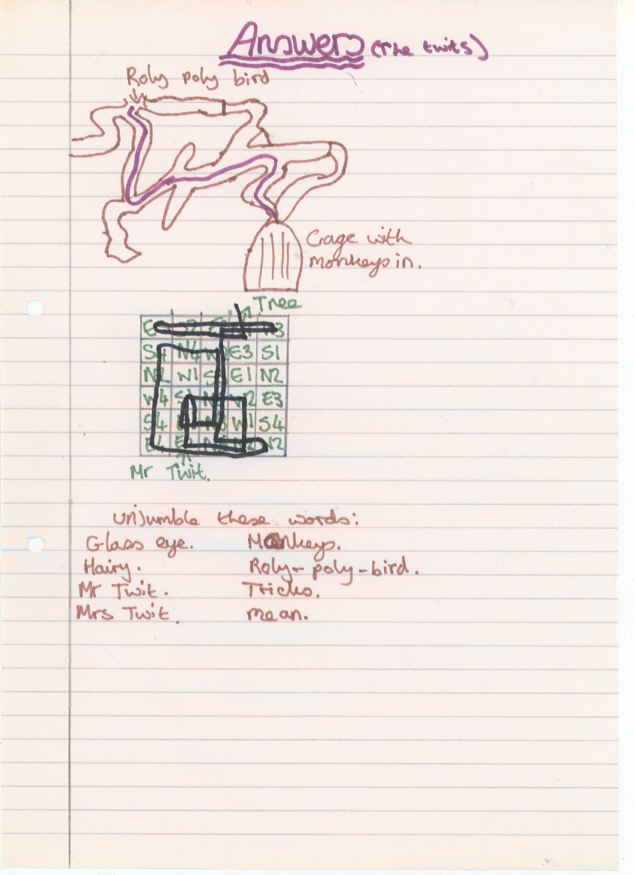 Answers (The twits)
Roly poly bird
Cage with
monkeys in.
Tree
E 3
S4 N4 E3 S1
N2 W1 S E1 N2
W4 S 2 E3
S4 E W1 S4
E4 E 2
Mr Twit.
unjumble these words:
Glass eye. Monkeys.
Hairy. Roly-poly-bird.
Mr Twit. Tricks.
Mrs Twit. mean.